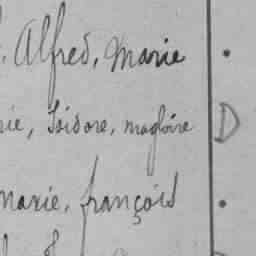 Alfred, Marie .
rie, Isidore, magloire D
marie, françois .